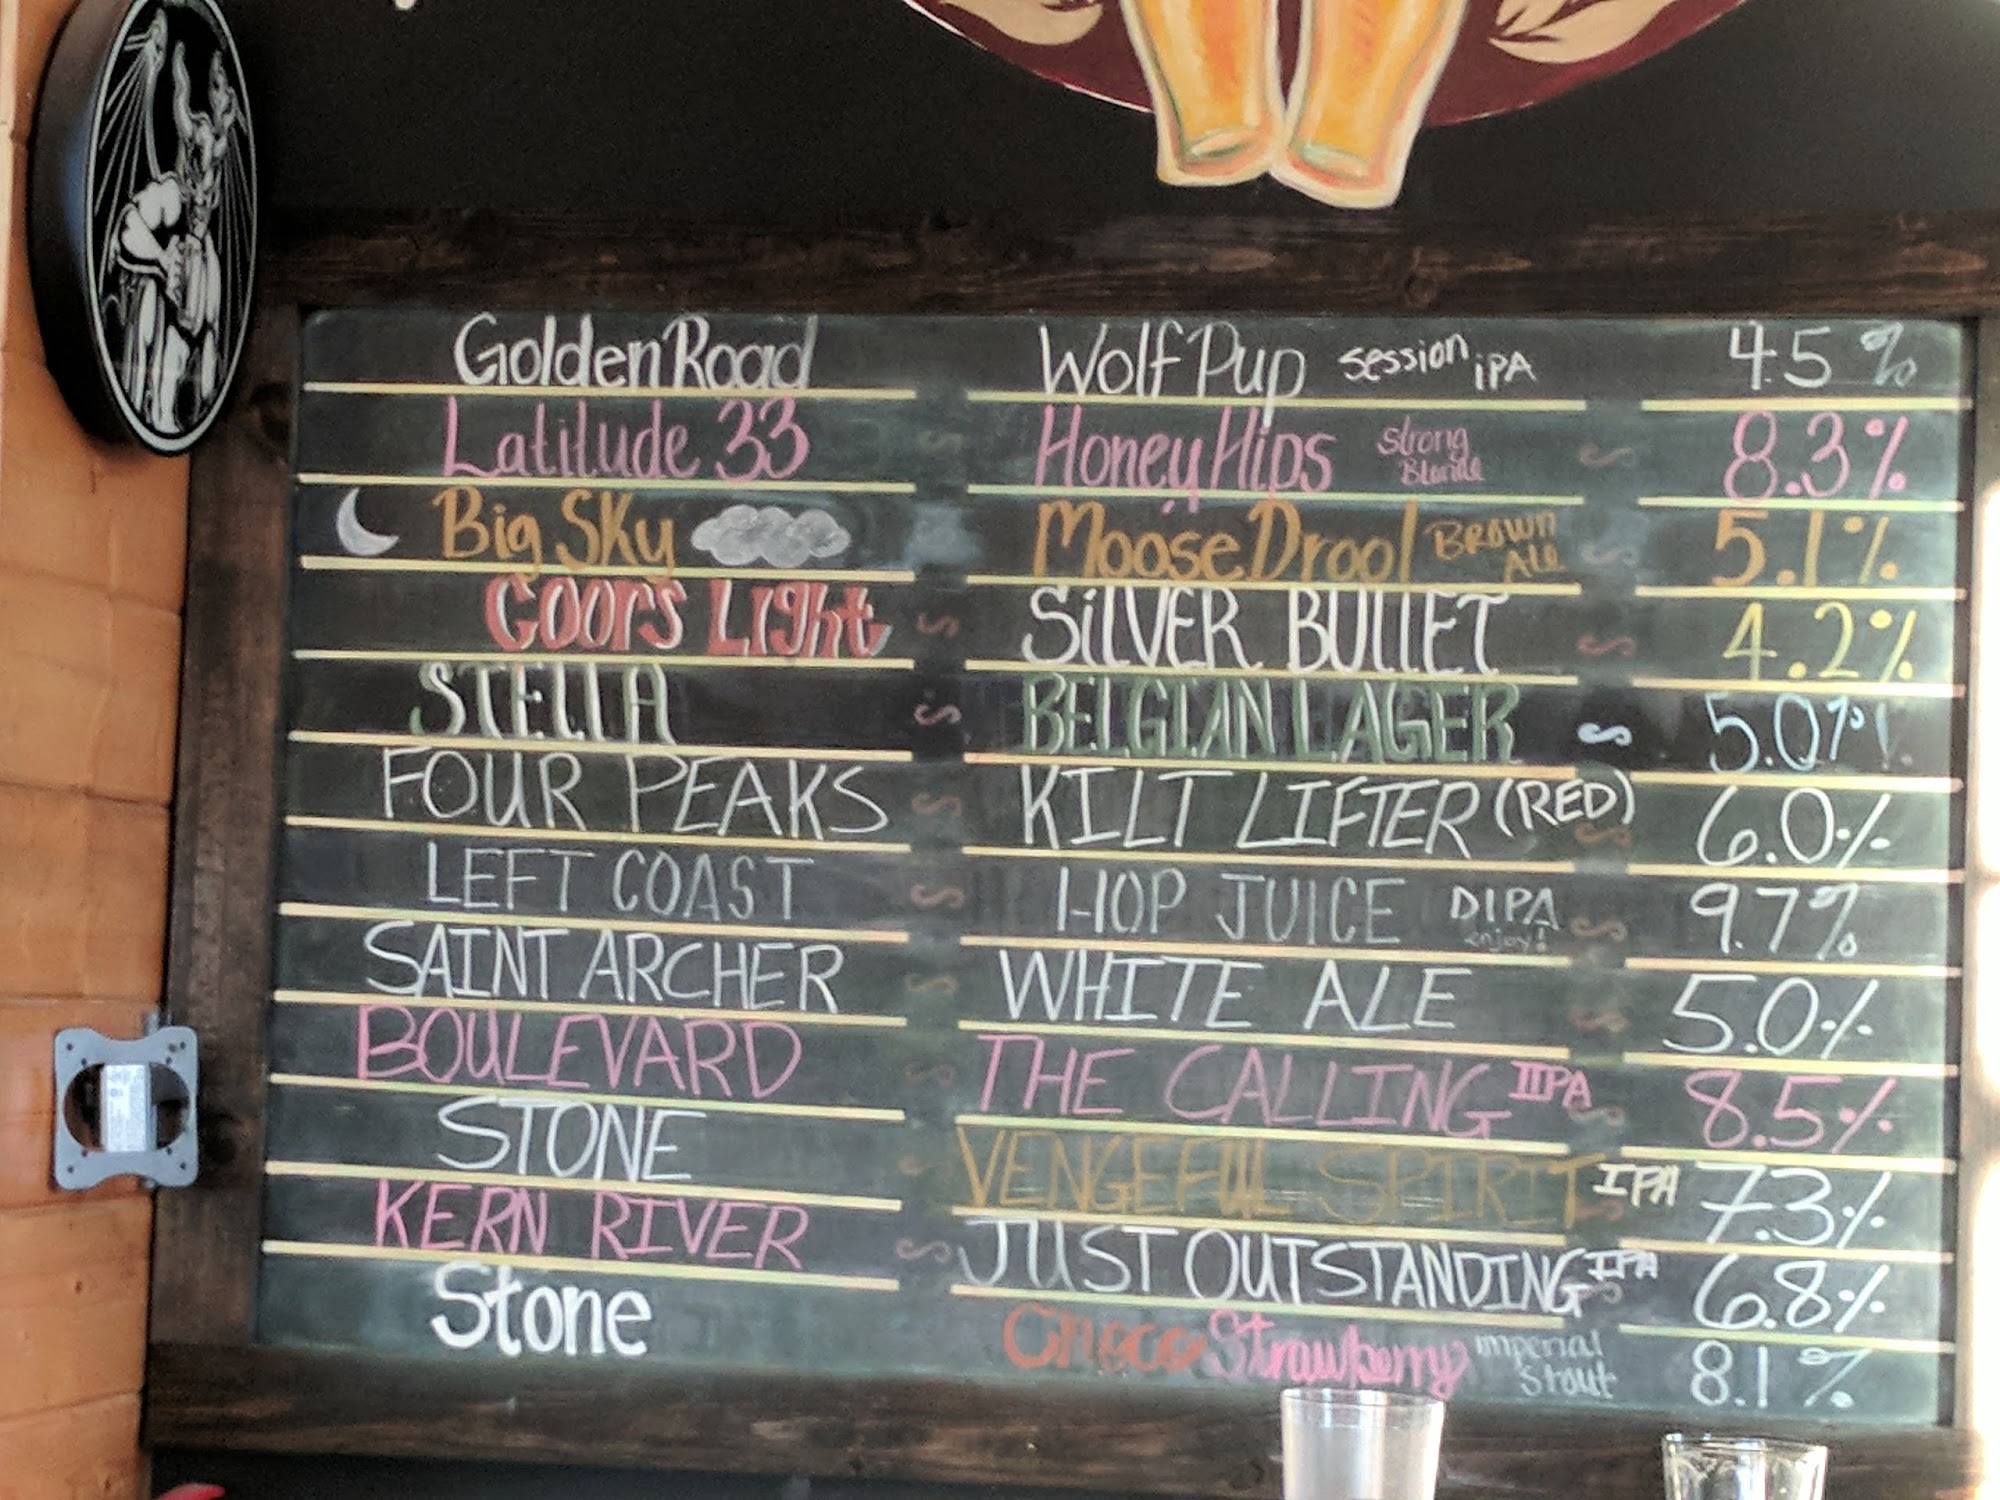 Golden Road Wolf Pup Session iPA 4.5%
Latitude 33 Honey Hips Strong Blonde 8.3%
Big Sky Moose Drool Brown Ale 5.1%
Coors Light SilVER BULLET 4.2%
STELLA BELGIAN LAGER 5.0%
FOUR PEAKS KILT LIFTER (RED) 6.0%
LEFT COAST HOP JUICE DIPA enjoy! 9.7%
SAINT ARCHER WHITE ALE 5.0%
BOULEVARD THE CALLING IIPA 8.5%
STONE VENGEFUL SPIRIT IPA 7.3%
KERN RIVER JUST OUTSTANDING IPA 6.8%
Stone Choco Strawberry imperial Stout 8.1%